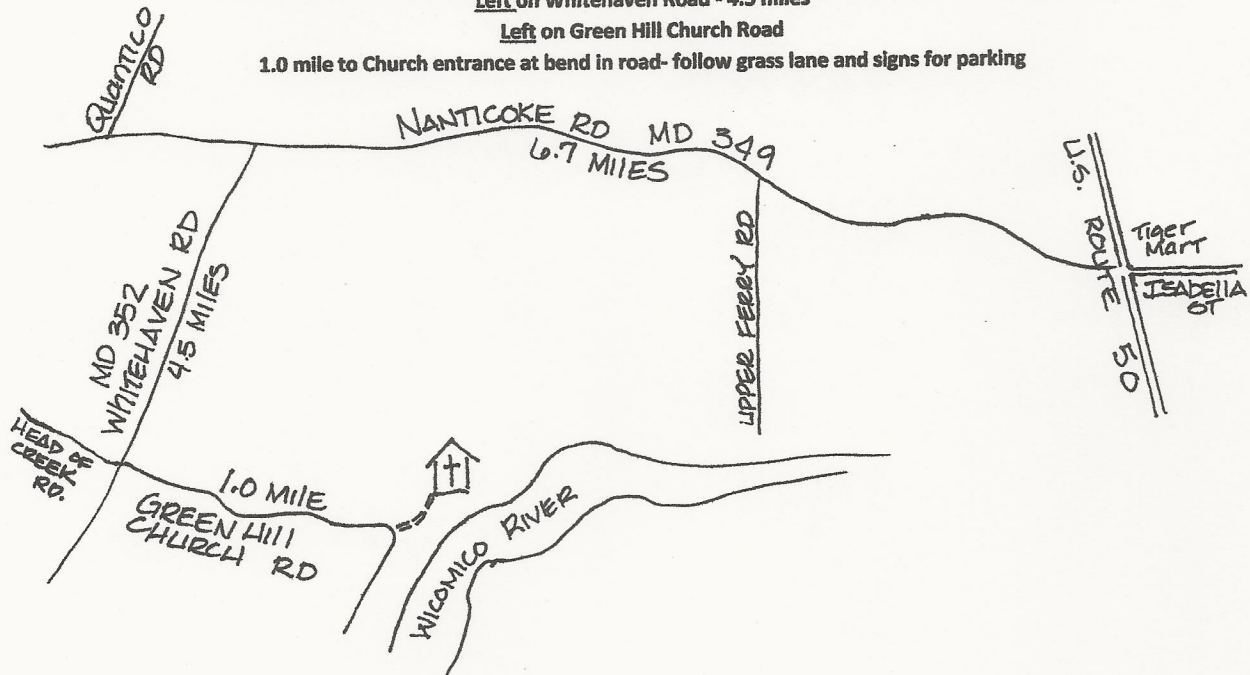 Left on Whitehaven Road - 4.5 miles
Left on Green Hill Church Road
1.0 mile to Church entrance at bend in road- follow grass lane and signs for parking
QUANTICO
RD
NANTICOKE RD MD 349
6.7 MILES
U.S. ROUTE 50
Tiger
MART
ISABELLA
ST
UPPER FERRY RD
MD 352
WHITEHAVEN RD
4.5 MILES
HEAD OF
CREEK
RD.
1.0 MILE
GREEN HILL
CHURCH RD
WICOMICO RIVER